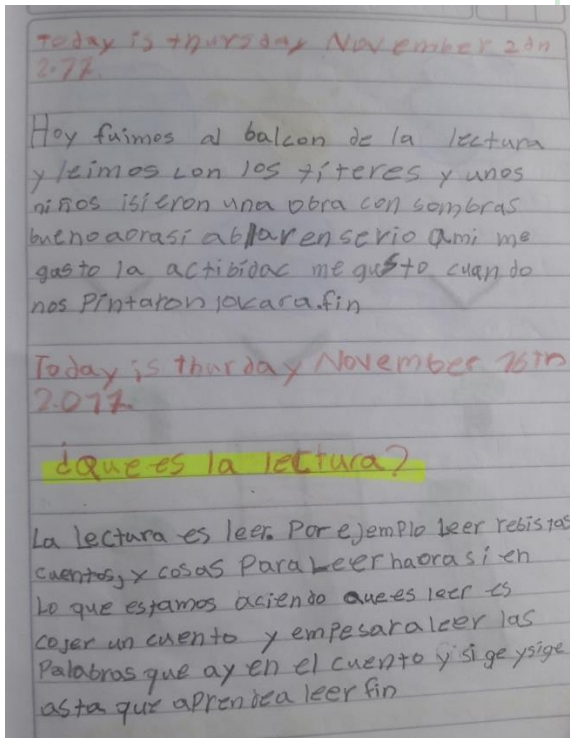 today is thursday November 2dn
2.77.
Hoy fuimos al balcon de la lectura
y leimos con los títeres y unos
niños isieron una obra con sombras
bueno aorasí ablar enserio ami me
gusto la actibidac me gusto cuando
nos Pintaron lacara.fin
Today is thurday November 16th
2.017.
¿Que es la lectura?
La Lectura es leer. Por ejemplo Leer rebistas
cuentos, y cosas Para Leer haora si en
Lo que estamos aciendo que es leer es
cojer un cuento y empesar a leer las
Palabras que ay en el cuento y sige y sige
asta que aprendea leer fin